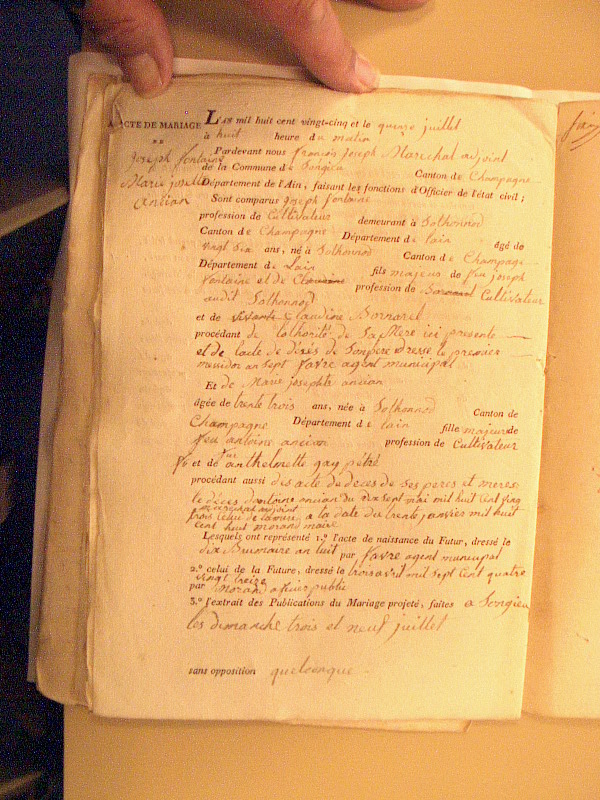 ACTE DE MARIAGE
DE
Joseph fontaine
Marie josette
ancian
L'AN mil huit cent vingt-cinq et le quinze juillet
à huit heure du matin
Pardevant nous françois joseph Marechal adjoint
de la Commune de Songieu Canton de Champagne
Département de l'Ain, faisant les fonctions d'Officier de l'état civil;
Sont comparus joseph fontaine
profession de Cultivateur demeurant à Sothonnod
Canton de Champagne Département de lain âgé de
vingt six ans, né à Sothonnod Canton de Champagne
Département de Lain fils majeur de feu joseph
fontaine et de profession de Cultivateur
audit Sothonnod
et de vivante Claudine Bornarel
procédant de lothorité de Sa Mere ici presente
et de lacte de décès de Sonpere dresse le premier
messidor an sept favre agent municipal
Et de Marie josephte ancian
âgée de trente trois ans, née à Sothonnod Canton de
Champagne Département de lain fille majeure de
feu antoine ancian profession de Cultivateur
et de feue anthelmette gay pétré
procédant aussi des acte de deces de ses peres et meres
le décès dantoine ancian du dix sept mai mil huit cent
marechal adjoint
trois celui de lamere a la date du trente janvier mil huit
cent huit morand maire
Lesquels ont représenté 1.º l'acte de naissance du Futur, dressé le
dix Brumaire an huit par favre agent municipal
2.º celui de la Future, dressé le trois avril mil sept cent quatre
vingt treize
par morand officier public
3.º l'extrait des Publications du Mariage projeté, faites a Songieu
les dimanche trois et neuf juillet
sans opposition quelconque